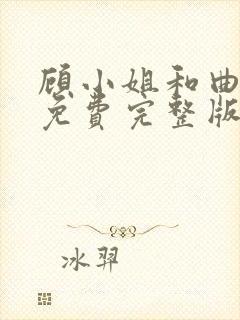 顾小姐和曲
免费完整版
冰羿